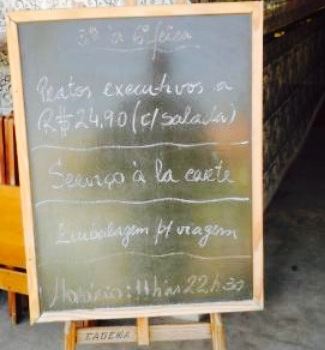 3ª à 6ª feira
Pratos executivos a
R$24,90 (c/ salada)
Serviço à la carte
Embalagem p/ viagem
Horário: 11h às 22h30
CADENA